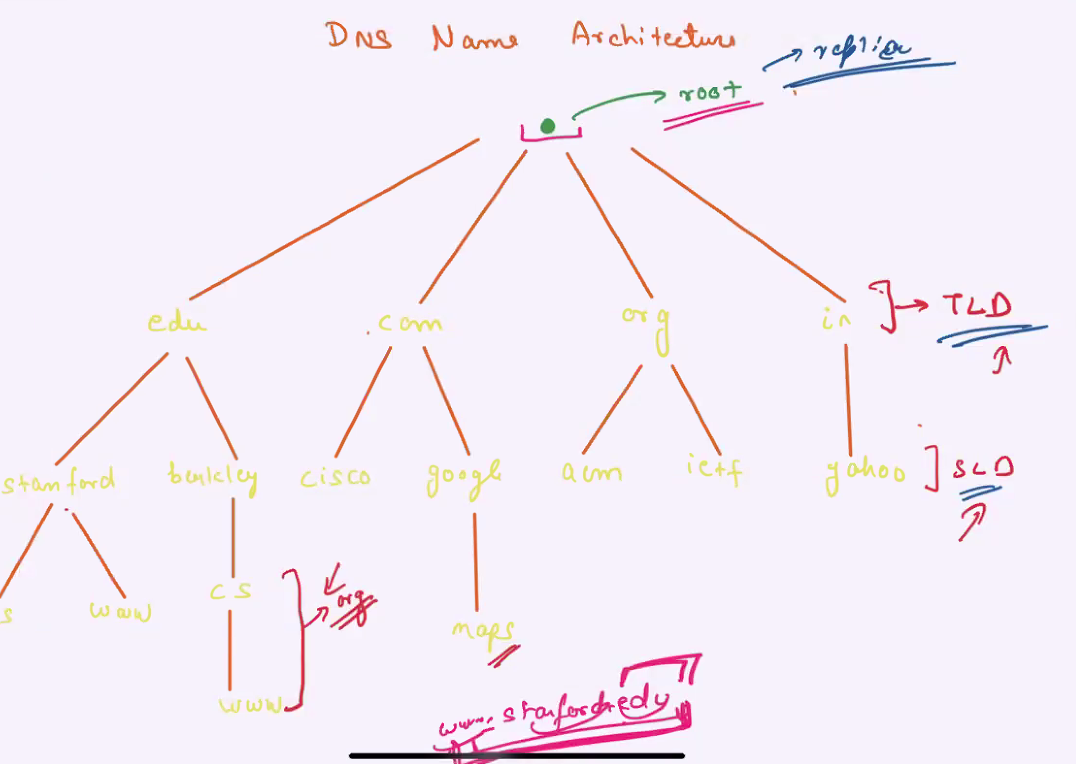 DNS Name Architecture
root
edu com org in
TLD
stanford berkley cisco google acm ietf yahoo
SLD
s www cs org
maps
www
www.stanford.edu